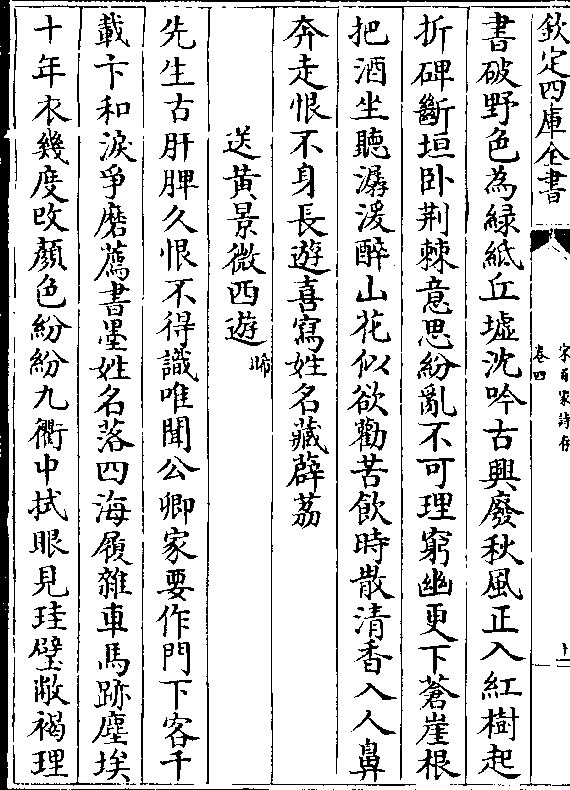 欽定四庫全書
宋百家詩存
卷四
十一
書破野色為緑紙丘墟沈吟古興廢秋風正入紅樹起
折碑斷垣卧荆棘意思紛亂不可理窮幽更下蒼崖根
把酒坐聽潺湲醉山花似欲勸苦飲時散清香入人鼻
奔走恨不身長遊喜寫姓名藏薜荔
送黄景微西遊晞
先生古肝脾久恨不得識唯聞公卿家要作門下客千
載卞和淚爭磨薦書墨姓名落四海履雜車馬跡塵埃
十年衣幾度改顔色紛紛九衢中拭眼見珪璧敝褐理